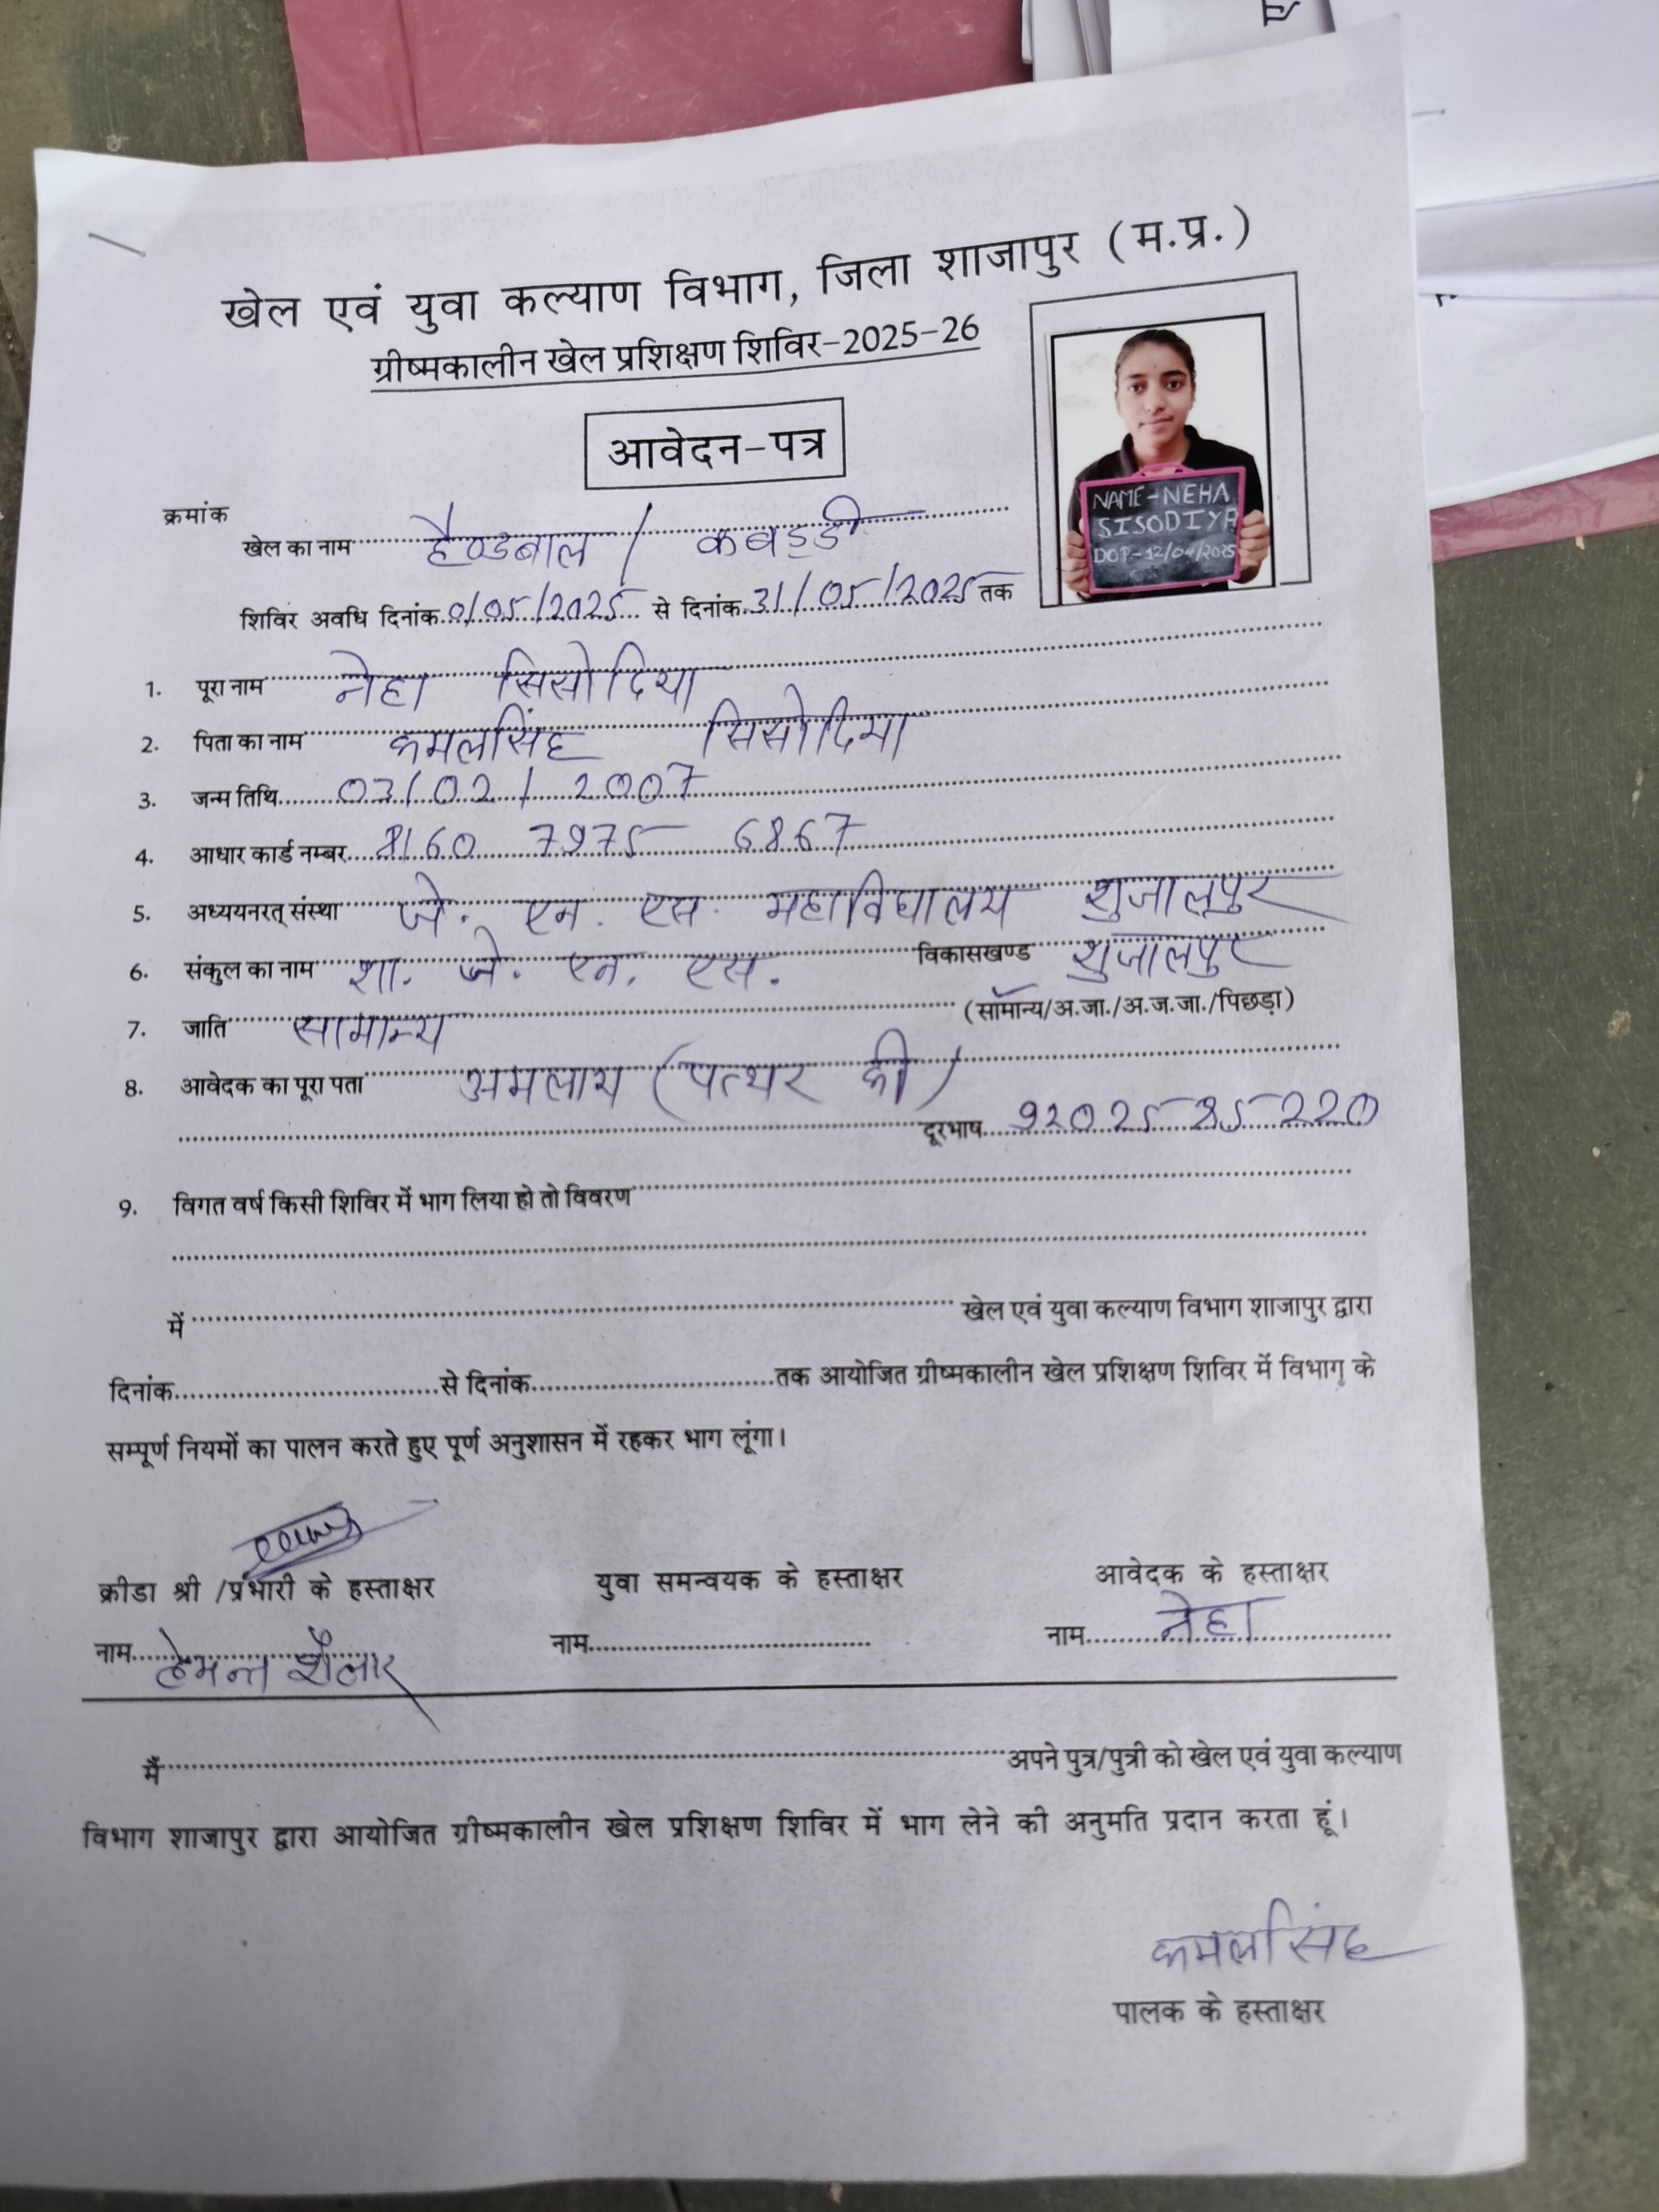 खेल एवं युवा कल्याण विभाग, जिला शाजापुर (म.प्र.)
ग्रीष्मकालीन खेल प्रशिक्षण शिविर-2025-26
आवेदन-पत्र
NAME-NEHA
SISODIYA
DOP-12/04/2025
क्रमांक
खेल का नाम हैण्डबाल / कबड्डी
शिविर अवधि दिनांक 01/05/2025 से दिनांक 31/05/2025 तक
1. पूरा नाम नेहा सिसोदिया
2. पिता का नाम कमलसिंह सिसोदिया
3. जन्म तिथि 03/02/2007
4. आधार कार्ड नम्बर 8160 7975 6867
5. अध्ययनरत् संस्था जे. एन. एस. महाविद्यालय शुजालपुर
6. संकुल का नाम शा. जे. एन. एस. विकासखण्ड शुजालपुर
7. जाति सामान्य (सामान्य/अ.जा./अ.ज.जा./पिछड़ा)
8. आवेदक का पूरा पता अमलाय (पत्थर की)
दूरभाष
9. विगत वर्ष किसी शिविर में भाग लिया हो तो विवरण
में खेल एवं युवा कल्याण विभाग शाजापुर द्वारा
दिनांक से दिनांक तक आयोजित ग्रीष्मकालीन खेल प्रशिक्षण शिविर में विभाग के
सम्पूर्ण नियमों का पालन करते हुए पूर्ण अनुशासन में रहकर भाग लूंगा।
क्रीडा श्री /प्रभारी के हस्ताक्षर युवा समन्वयक के हस्ताक्षर आवेदक के हस्ताक्षर
नाम हेमन्त शैलार नाम नाम नेहा
मैं अपने पुत्र/पुत्री को खेल एवं युवा कल्याण
विभाग शाजापुर द्वारा आयोजित ग्रीष्मकालीन खेल प्रशिक्षण शिविर में भाग लेने की अनुमति प्रदान करता हूं।
कमलसिंह
पालक के हस्ताक्षर